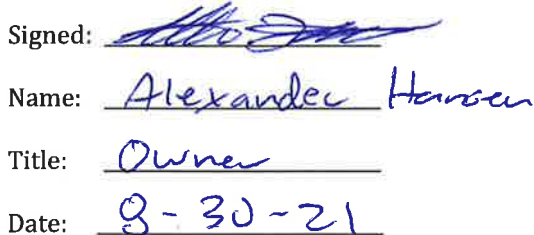 Signed:
Name: Alexander Hansen
Title: Owner
Date: 9-30-21